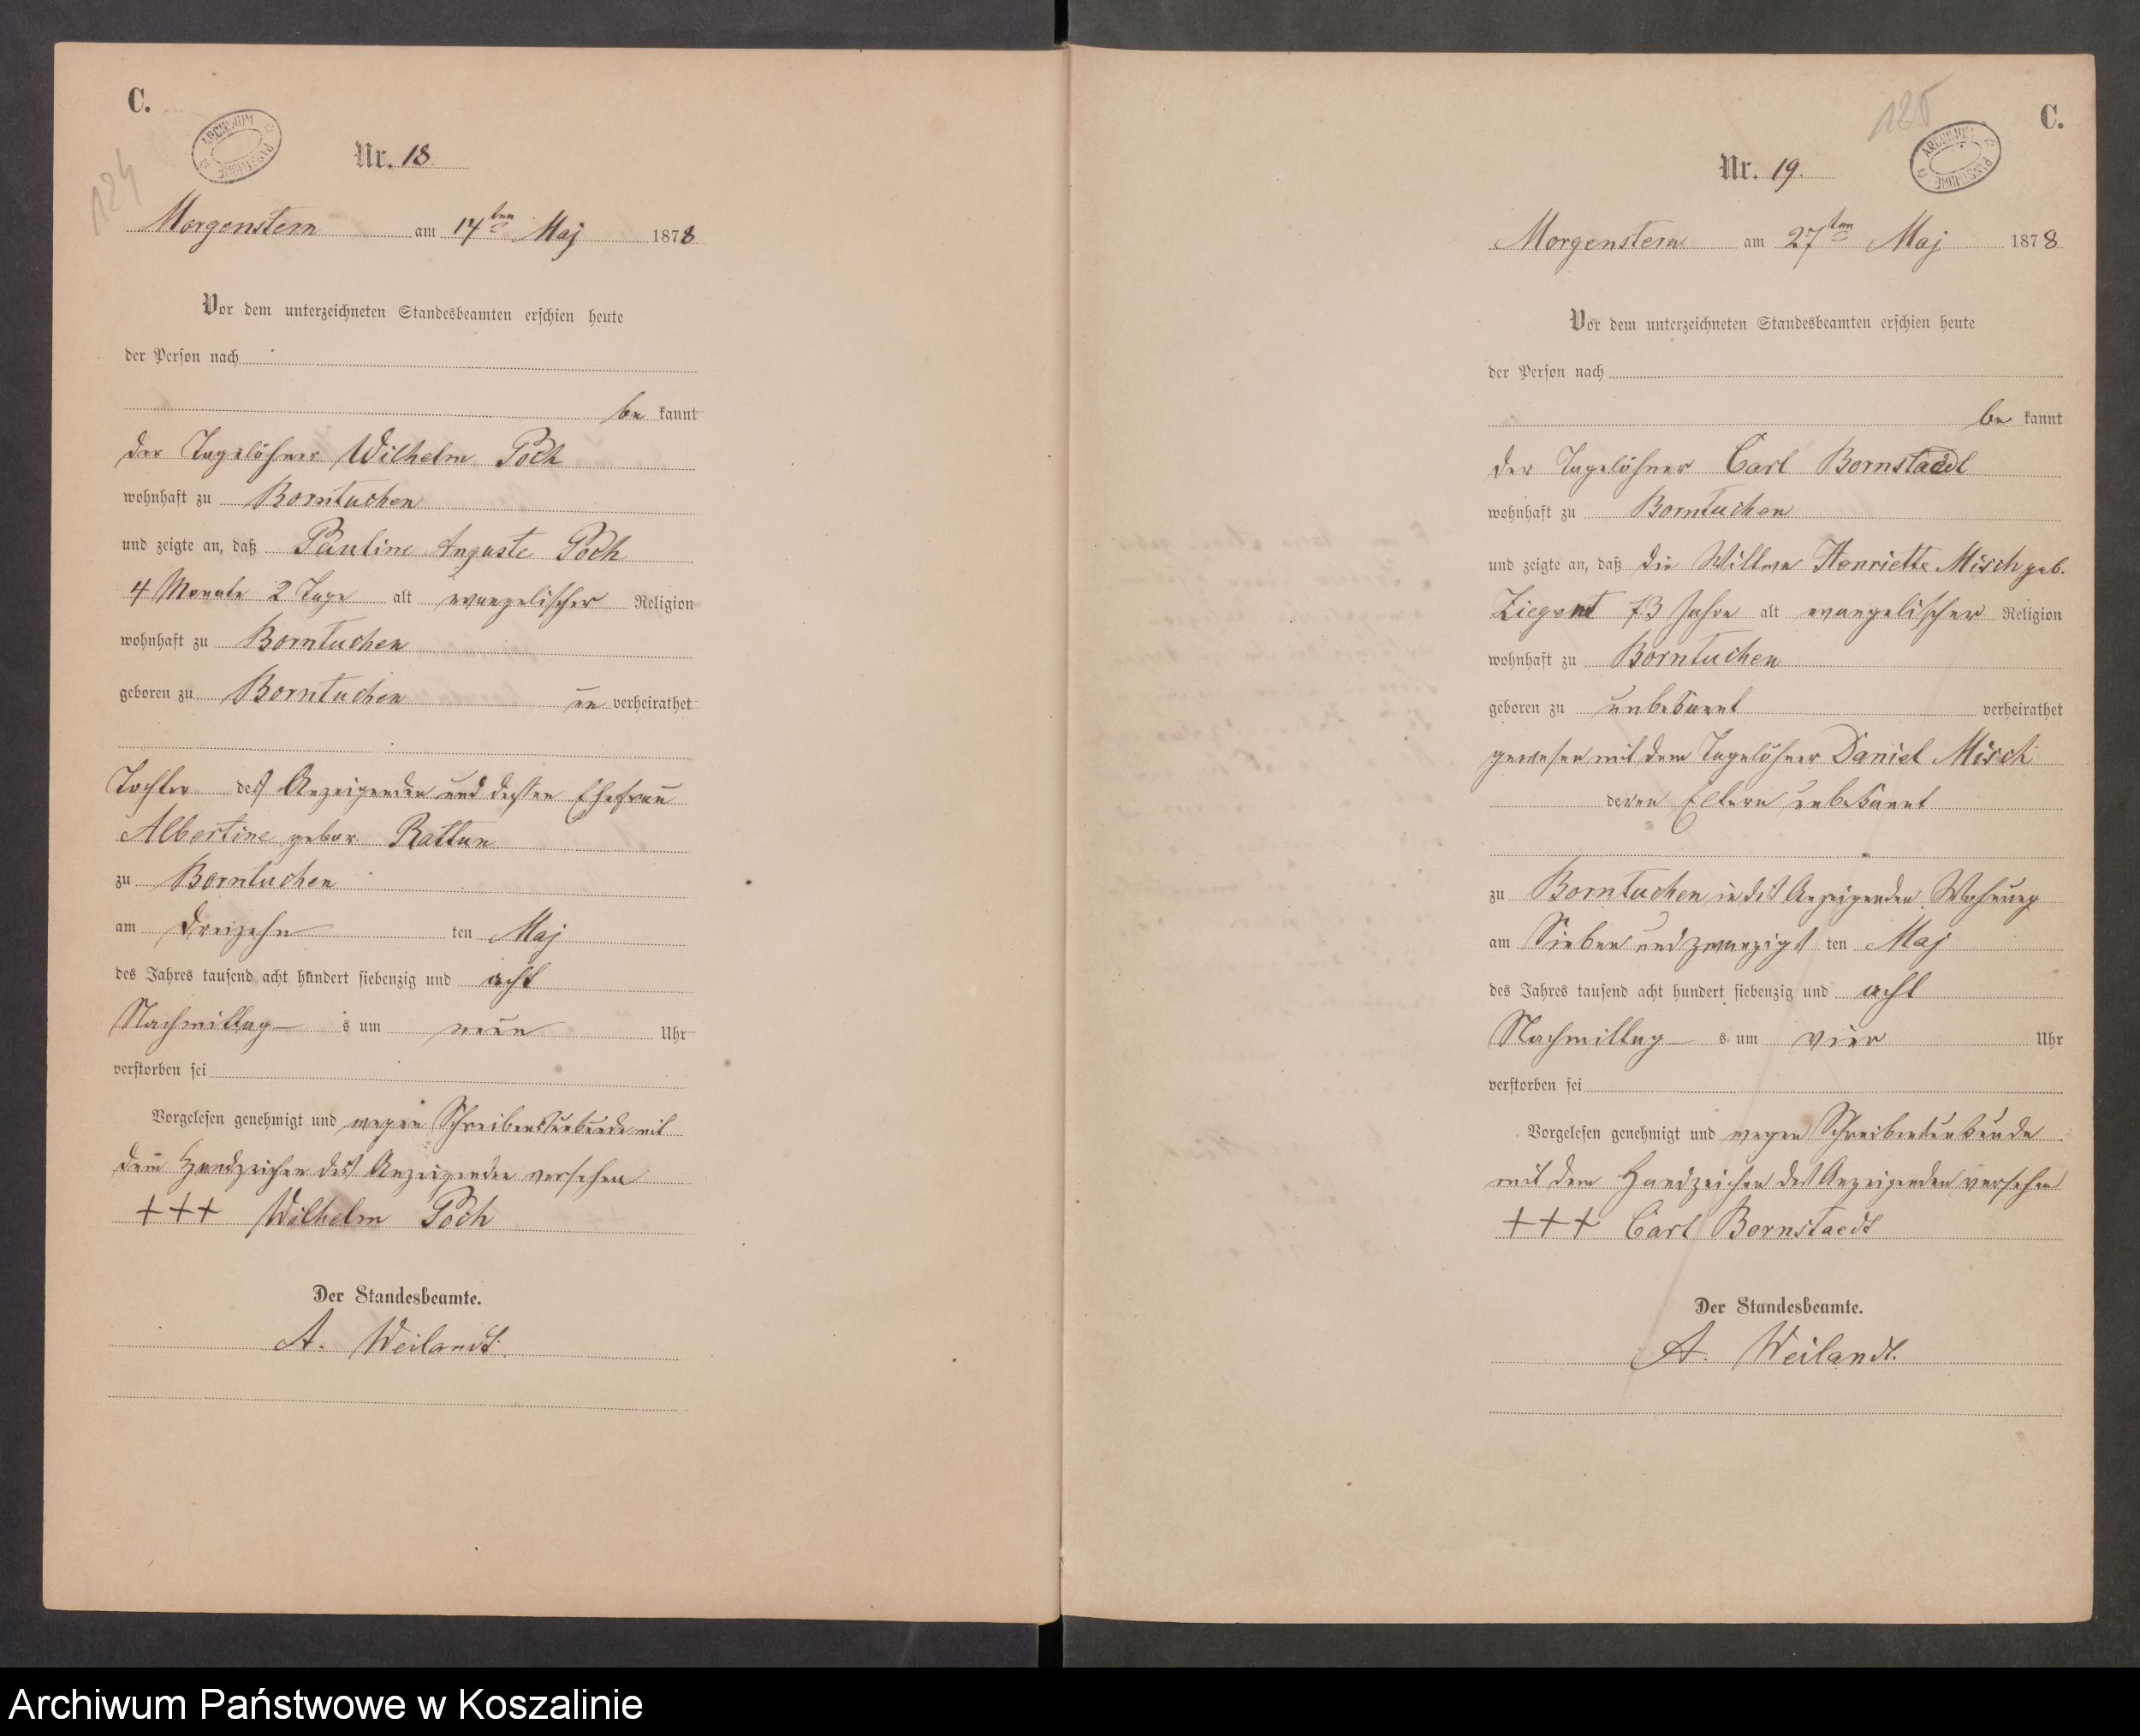 C.
124
ARCHIWUM PAŃSTWOWE
Nr. 18
Morgenstern am 14ten Maj 1878
Vor dem unterzeichneten Standesbeamten erschien heute
der Person nach
be kannt
der Tagelöhner Wilhelm Poch
wohnhaft zu Borntuchen
und zeigte an, daß Pauline Auguste Poch
4 Monate 2 Tage alt evangelischer Religion
wohnhaft zu Borntuchen
geboren zu Borntuchen un verheirathet
Tochter des Anzeigenden und dessen Ehefrau
Albertine gebor. Rattun
zu Borntuchen
am dreizehn ten Maj
des Jahres tausend acht hundert siebenzig und acht
Nachmittag s um neun Uhr
verstorben sei
Vorgelesen genehmigt und wegen Schreibensunkunde mit
dem Handzeichen des Anzeigenden versehen
+++ Wilhelm Poch
Der Standesbeamte.
A. Weilandt.
125
C.
ARCHIWUM PAŃSTWOWE
Nr. 19.
Morgenstern am 27ten Maj 1878
Vor dem unterzeichneten Standesbeamten erschien heute
der Person nach
be kannt
der Tagelöhner Carl Bornstaedt
wohnhaft zu Borntuchen
und zeigte an, daß die Wittwe Henriette Misch geb.
73 Jahre alt evangelischer Religion
wohnhaft zu Borntuchen
geboren zu unbekannt verheirathet
gewesen mit dem Tagelöhner Daniel Misch
deren Eltern unbekannt
zu Borntuchen in des Anzeigenden Wohnung
am Sieben und zwanzigst ten Maj
des Jahres tausend acht hundert siebenzig und acht
Nachmittag s um vier Uhr
verstorben sei
Vorgelesen genehmigt und wegen Schreibensunkunde
mit dem Handzeichen des Anzeigenden versehen
+++ Carl Bornstaedt
Der Standesbeamte.
A. Weilandt.
Archiwum Państwowe w Koszalinie